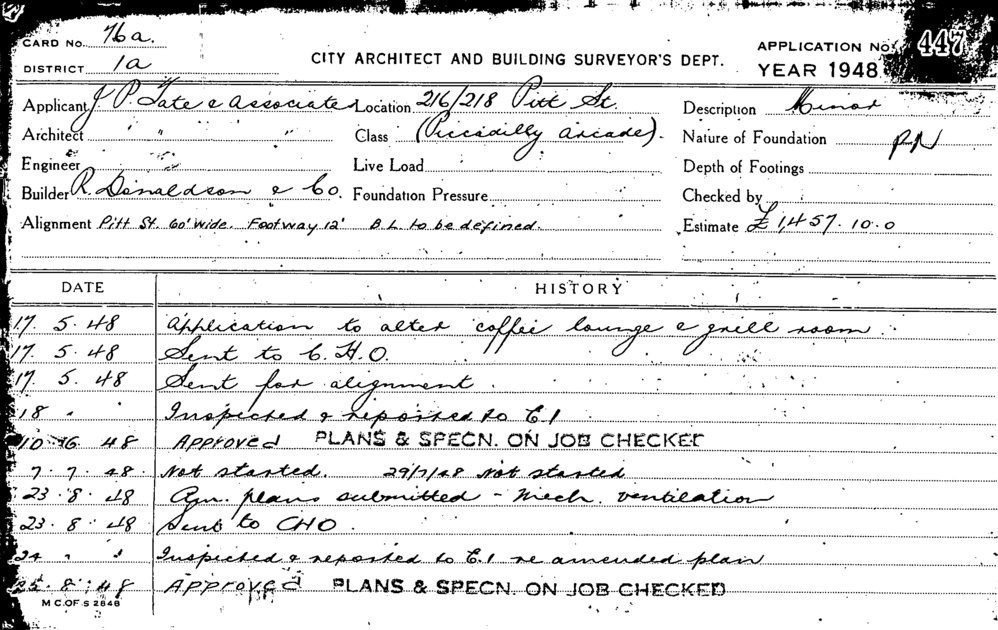 CARD No. 76a.
DISTRICT 1a
CITY ARCHITECT AND BUILDING SURVEYOR'S DEPT.
APPLICATION No. 447
YEAR 1948
Applicant J P Tate & Associates Location 216/218 Pitt St. Description Minor
Architect " " Class (Piccadilly arcade). Nature of Foundation
Engineer Live Load Depth of Footings
Builder R. Donaldson & Co. Foundation Pressure Checked by
Alignment Pitt St. 60' wide. Footway 12' B.L. to be defined. Estimate £1,457.10.0
DATE HISTORY
17. 5. 48 Application to alter coffee lounge & grill room
17. 5. 48 Sent to C.H.O.
17. 5. 48 Sent for alignment.
18 " Inspected & reported to E.1
10 6 48 Approved PLANS & SPECN. ON JOB CHECKED
7. 7. 48. Not started. 29/7/48 Not started
23. 8. 48 Am. plans submitted - Mech. ventilation
23. 8. 48 Sent to CHO.
24 " " Inspected & reported to E.1 re amended plan
25. 8. 48 Approved PLANS & SPECN. ON JOB CHECKED
M C. OF S 2848